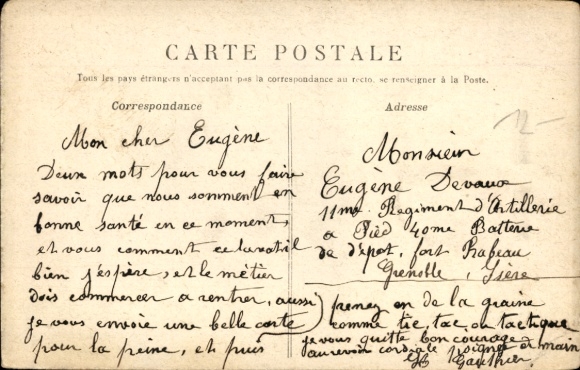 CARTE POSTALE
Tous les pays étrangers n'acceptent pas la correspondance au recto, se renseigner à la Poste.
Correspondance
Mon cher Eugène
Deux mots pour vous faire
savoir que nous somment en
bonne santé en ce moment,
et vous comment ce la va til
bien j'espère, et le métier
dois commercer a rentrer, aussi
je vous envoie une belle carte
pour la peine, et puis
Adresse
12-
Monsieur
Eugène Devaux
11me Regiment d'Artillerie
a Pied 40me Batterie
de dépot, fort Rabeau
Grenoble, Isère
prenez en de la graine
comme tic, tac, ou tactique
je vous quitte bon courage
au revoir cordiale poignée de main
Gauthier